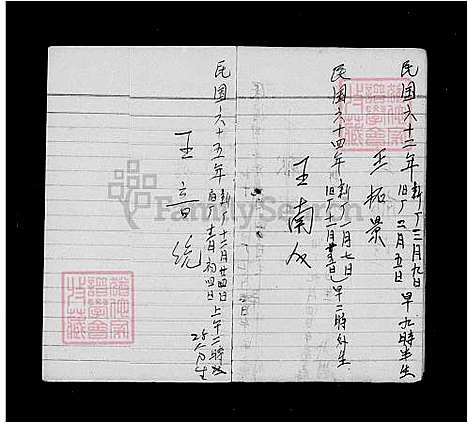 民国六十二年新厂三月九日 旧厂二月五日 早九時半生
王拓景
民国六十四年新厂一月七日 旧厂十一月廿五日 早二時外生
王南
民国六十五年新厂十二月廿四日 旧厂十一月初四日 上午二時 25分生
王音统
FamilySearch